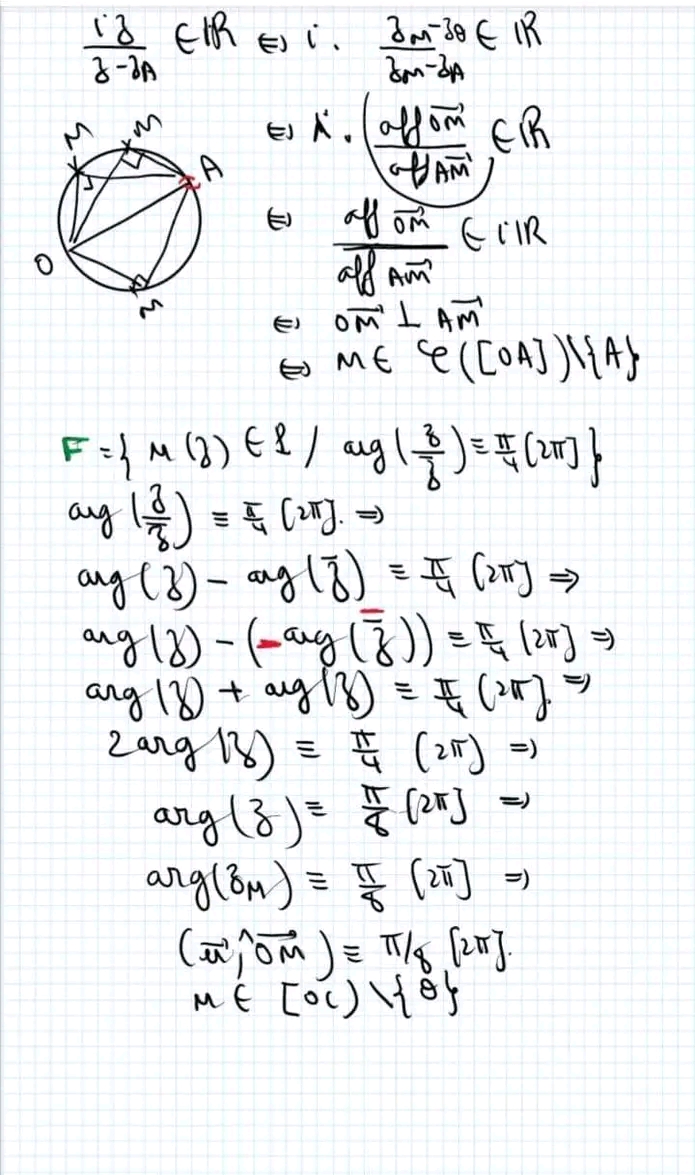 iz/(z-z_A) ∈ IR ⇔ i. (z_M-z_O)/(z_M-z_A) ∈ IR
⇔ i. (aff OM⃗ / aff AM⃗) ∈ IR
⇔ aff OM⃗ / aff AM⃗ ∈ iIR
⇔ OM⃗ ⊥ AM⃗
⇔ M ∈ 𝒞([OA])\{A}
M M A
O M
F = { M(z) ∈ P / arg(z/z̄) ≡ π/4 [2π] }
arg(z/z̄) ≡ π/4 [2π]. ⇒
arg(z) - arg(z̄) ≡ π/4 [2π] ⇒
arg(z) - (-arg(z̄)) ≡ π/4 [2π] ⇒
arg(z) + arg(z) ≡ π/4 [2π]. ⇒
2arg(z) ≡ π/4 (2π) ⇒
arg(z) ≡ π/8 [2π] ⇒
arg(z_M) ≡ π/8 [2π] ⇒
(u⃗, OM⃗) ≡ π/8 [2π].
M ∈ [OC) \{O}